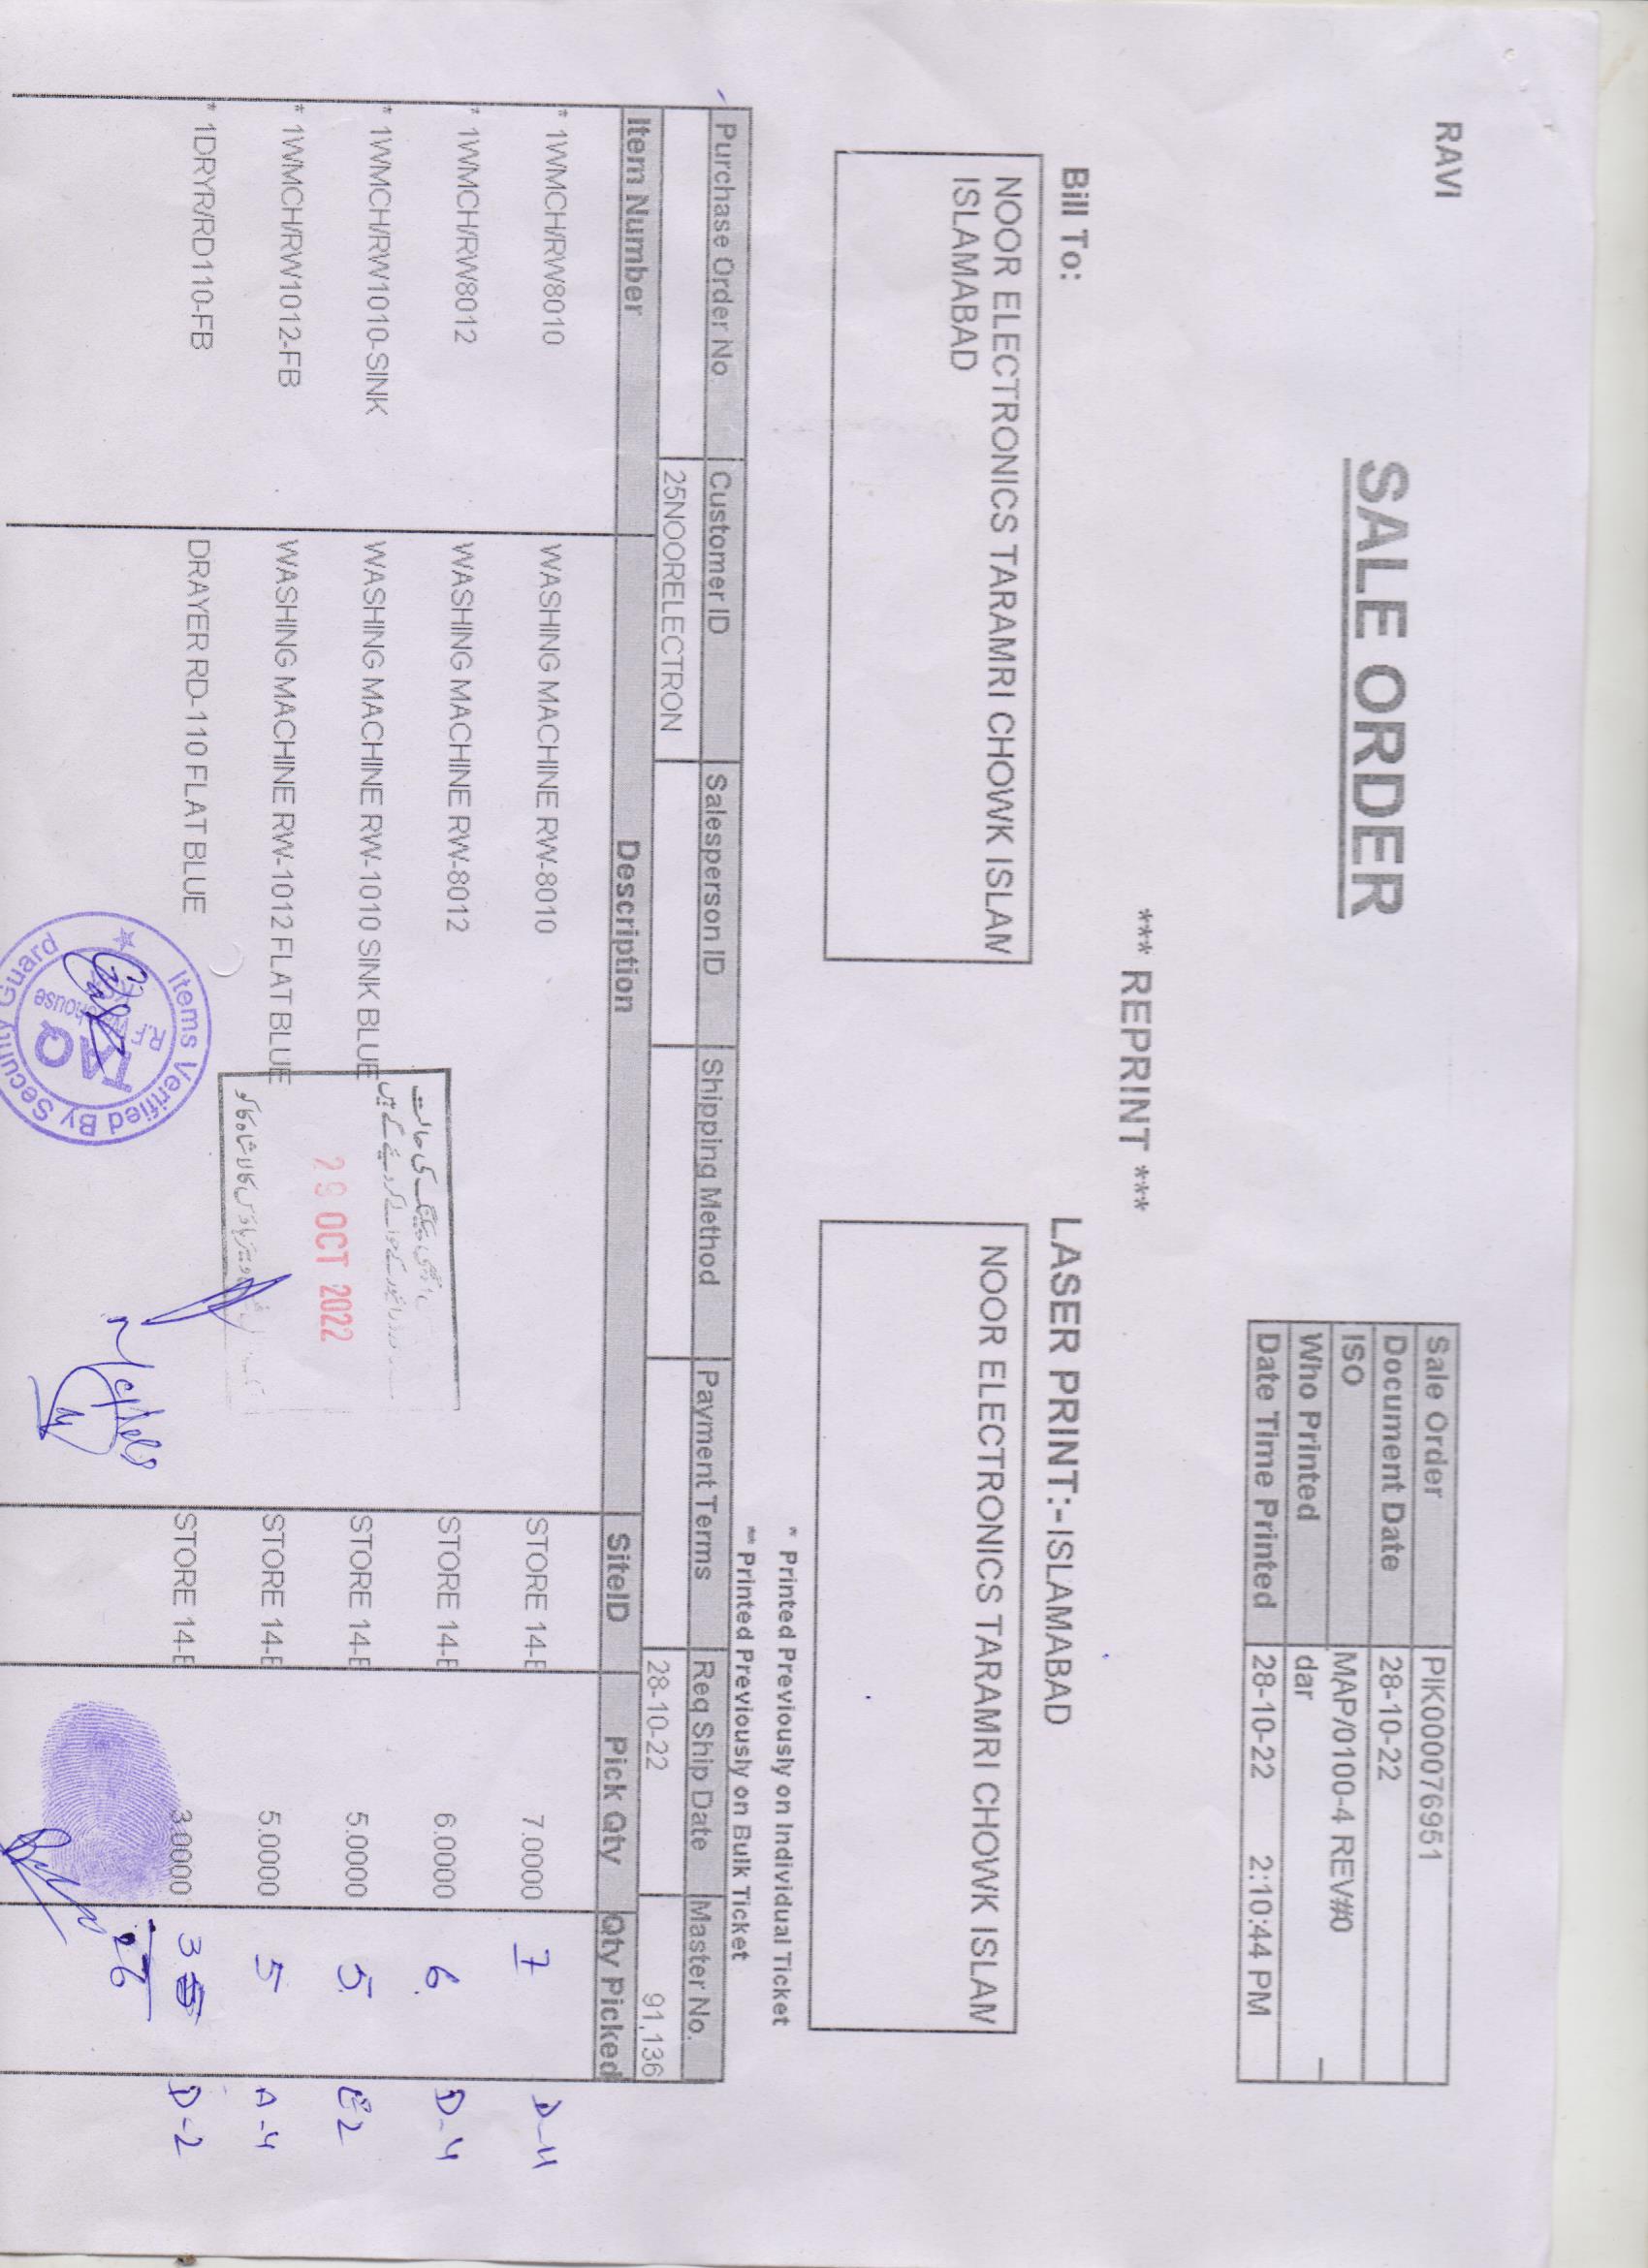 RAVI
SALE ORDER
Sale Order PIK000076951
Document Date 28-10-22
ISO MAP/0100-4 REV#0
Who Printed dar
Date Time Printed 28-10-22 2:10:44 PM
*** REPRINT ***
Bill To:
LASER PRINT:-ISLAMABAD
NOOR ELECTRONICS TARAMRI CHOWK ISLAM
ISLAMABAD
NOOR ELECTRONICS TARAMRI CHOWK ISLAM
* Printed Previously on Individual Ticket
** Printed Previously on Bulk Ticket
Purchase Order No Customer ID Salesperson ID Shipping Method Payment Terms Req Ship Date Master No.
25NOORELECTRON 28-10-22 91,136
Item Number Description SiteID Pick Qty Qty Picked
* 1WMCH/RW8010 WASHING MACHINE RW-8010 STORE 14-E 7.0000 7
* 1WMCH/RW8012 WASHING MACHINE RW-8012 STORE 14-E 6.0000 6 D-4
* 1WMCH/RW1010-SINK WASHING MACHINE RW-1010 SINK BLUE STORE 14-E 5.0000 5 E2
* 1WMCH/RW1012-FB WASHING MACHINE RW-1012 FLAT BLUE STORE 14-E 5.0000 5 A-4
* 1DRYR/RD110-FB DRAYER RD-110 FLAT BLUE STORE 14-E 3.0000 3 D-2
26
پیکنگ کی حالت
ڈرائیور کے حوالے کر دیئے گئے ہیں
OCT 2022
ویئر ہاؤس کالا شاہ کاکو
Items Verified By Security Guard
R.F Warehouse
TAQ